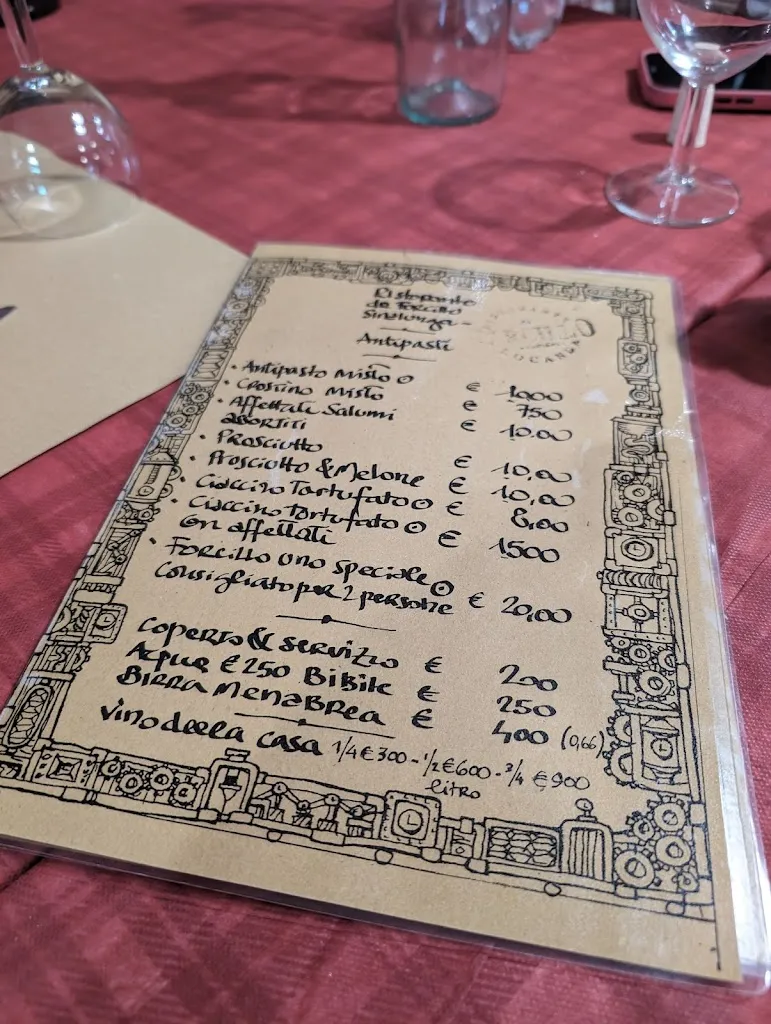 Ristorante
da Forcillo
Sinalunga
Antipasti
• Antipasto Misto € 1000
• Crostino Misto € 750
• Affettati Salumi € 10.00
assortiti
• Prosciutto € 10,00
• Prosciutto & Melone € 10,00
• Ciaccino Tartufato € 8,00
• Ciaccino tartufato € 1500
con affettati
• Forcillo uno speciale
Consigliato per 2 persone € 20,00
Coperto & servizio € 200
Acqua € 250 Bibite € 250
Birra Menabrea € 400 (0,66)
Vino della casa 1/4 € 300 - 1/2 € 600 - 3/4 € 900
litro